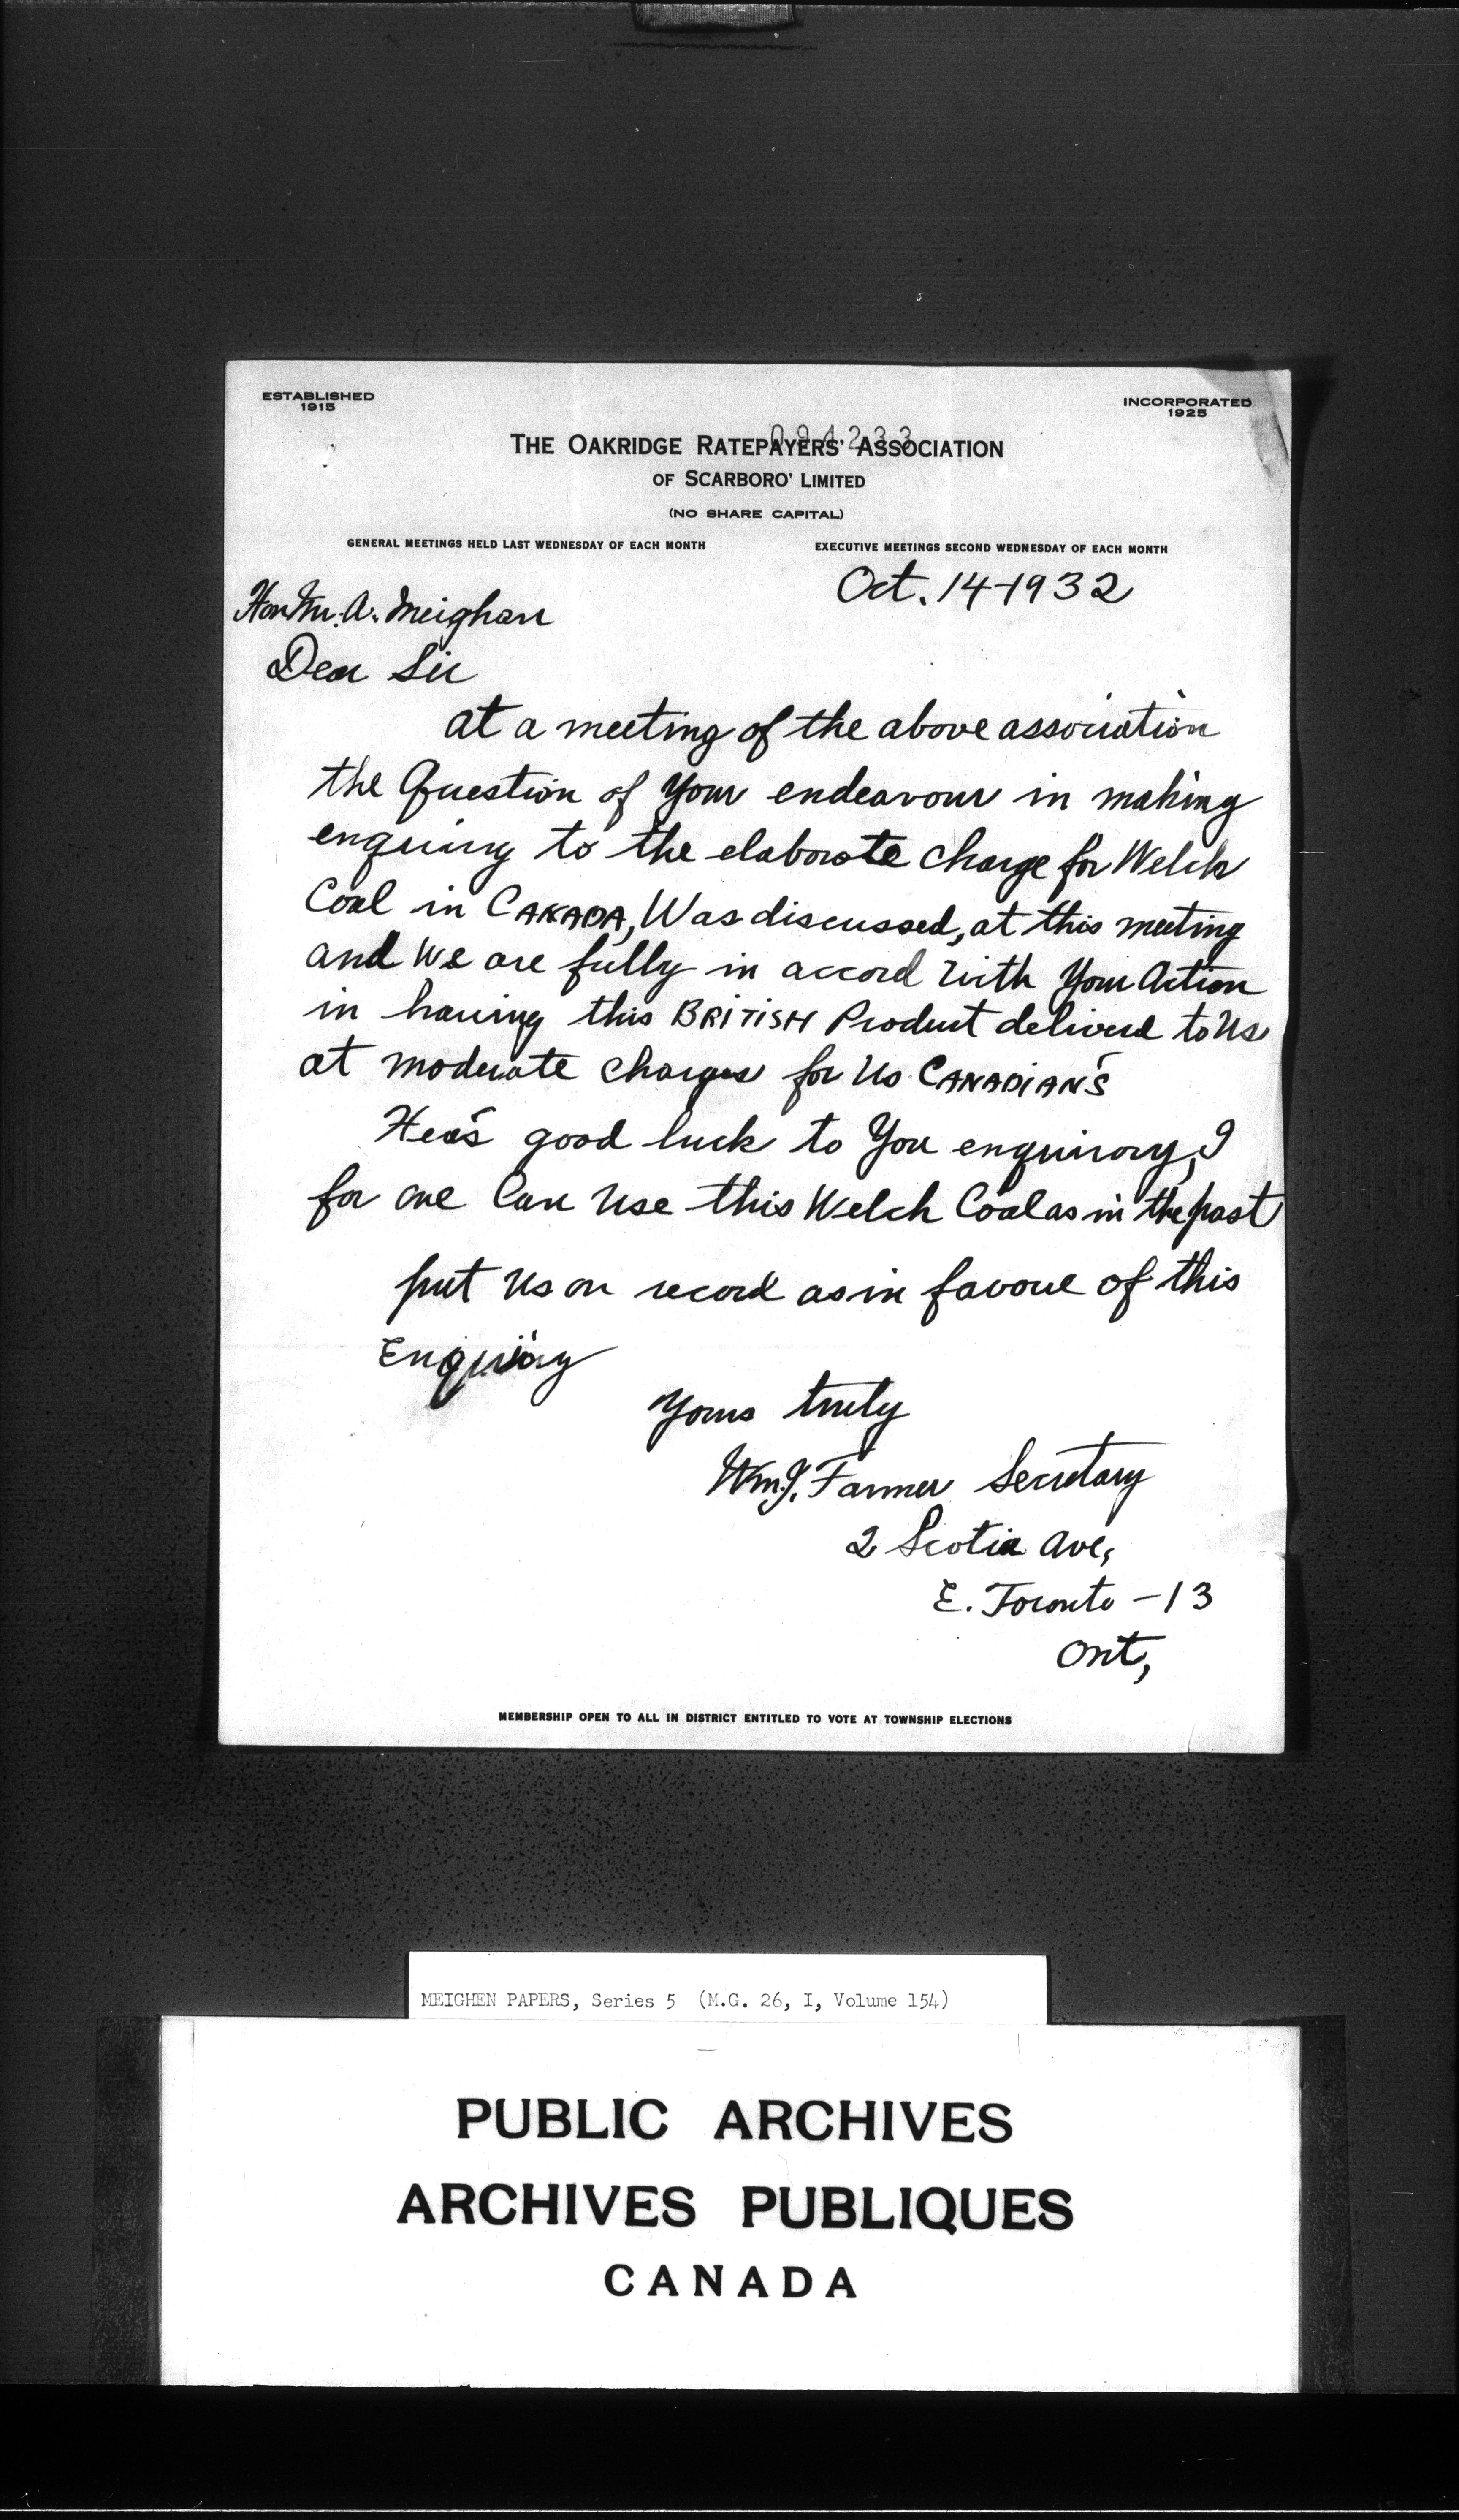 ESTABLISHED
1915
INCORPORATED
1925
094233
THE OAKRIDGE RATEPAYERS' ASSOCIATION
OF SCARBORO' LIMITED
(NO SHARE CAPITAL)
GENERAL MEETINGS HELD LAST WEDNESDAY OF EACH MONTH
EXECUTIVE MEETINGS SECOND WEDNESDAY OF EACH MONTH
Oct. 14-1932
Hon Mr. A. Meighan
Dear Sir
at a meeting of the above association
the Question of Your endeavour in making
enquiry to the elaborate charge for Welch
Coal in CANADA, Was discussed, at this meeting
and We are fully in accord with Your Action
in having this BRITISH Product deliverd to Us
at moderate charges for Us CANADIAN'S
Her's good luck to You enquirory, I
for one Can Use this Welch Coal as in the past
put Us on record as in favour of this
Enquiry
Yours truly
Wm J. Farmer Secretary
2 Scotia Ave,
E. Toronto - 13
Ont,
MEMBERSHIP OPEN TO ALL IN DISTRICT ENTITLED TO VOTE AT TOWNSHIP ELECTIONS
MEIGHEN PAPERS, Series 5 (M.G. 26, I, Volume 154)
PUBLIC ARCHIVES
ARCHIVES PUBLIQUES
CANADA